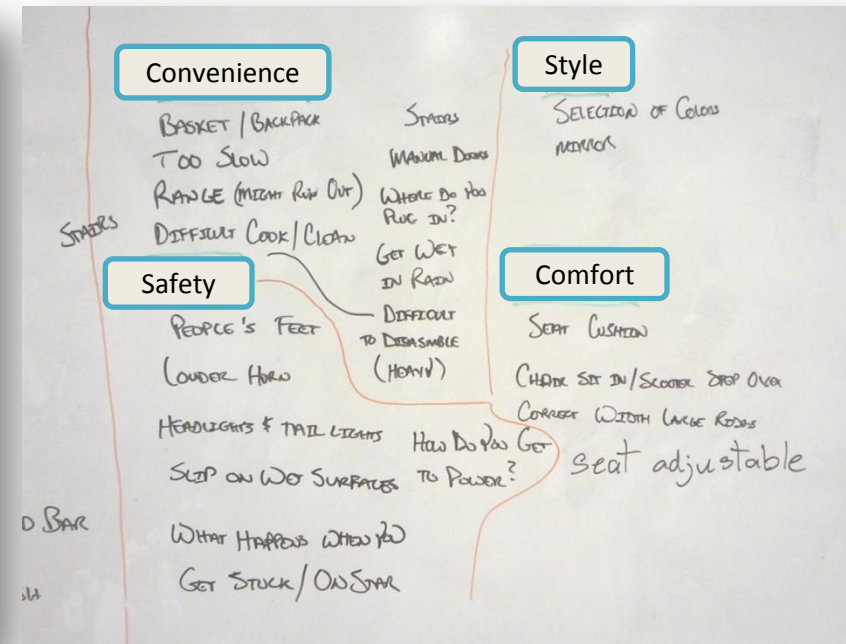 Convenience
BASKET / BACKPACK
TOO SLOW
RANGE (MIGHT RUN OUT)
DIFFICULT COOK / CLEAN
STAIRS
MANUAL DOORS
WHERE DO YOU
PLUG IN?
GET WET
IN RAIN
DIFFICULT
TO DISASMBLE
(HEAVY)
Style
SELECTION OF COLORS
MIRROR
STAIRS
Safety
PEOPLE'S FEET
LOUDER HORN
HEADLIGHTS & TAIL LIGHTS
SLIP ON WET SURFACES
HOW DO YOU GET
TO POWER?
WHAT HAPPENS WHEN YOU
GET STUCK / ONSTAR
Comfort
SEAT CUSHION
CHAIR SIT IN / SCOOTER STEP OVER
CORRECT WIDTH LARGE
seat adjustable
D BAR